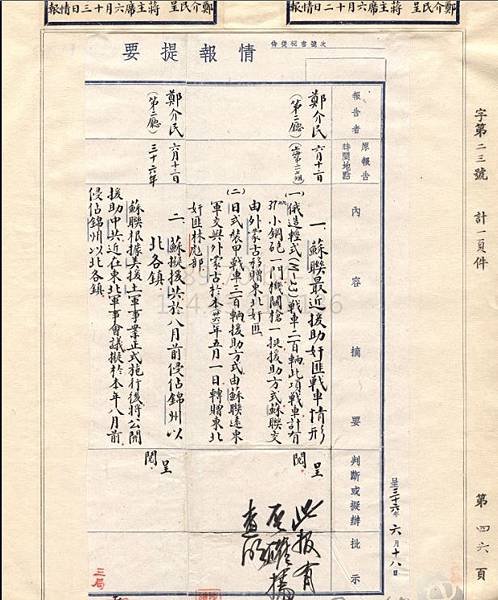 鄭介民呈 蔣主席六月十二日情報
鄭介民呈 蔣主席六月十三日情報
字第二三號 計一頁件
第四六頁
情報提要
報告者
原報告時間地點
內容摘要
判斷或擬辦
批示
呈三十六年六月十八日
鄭介民
(第二廳)
六月十二日
一、蘇聯最近援助奸匪戰車情形
(一)俄造輕式
戰車二百輛此項戰車計有
小鋼砲一門機關槍一挺援助方式蘇聯交
由外蒙古移贈東北奸匪
(二)日式裝甲戰車三百輛援助方式由蘇聯遠東
軍交與外蒙古於本年五月一日轉贈東北
奸匪林彪部
呈
閱
此報有
鄭介民
(第二廳)
六月十二日
三十六年
二、蘇擬援共於八月前侵佔錦州以
北各鎮
蘇聯根據美援土軍事業正式施行後將公開
援助中共近在東北軍事會議擬於本年八月前
侵佔錦州以北各鎮
呈
閱
三局